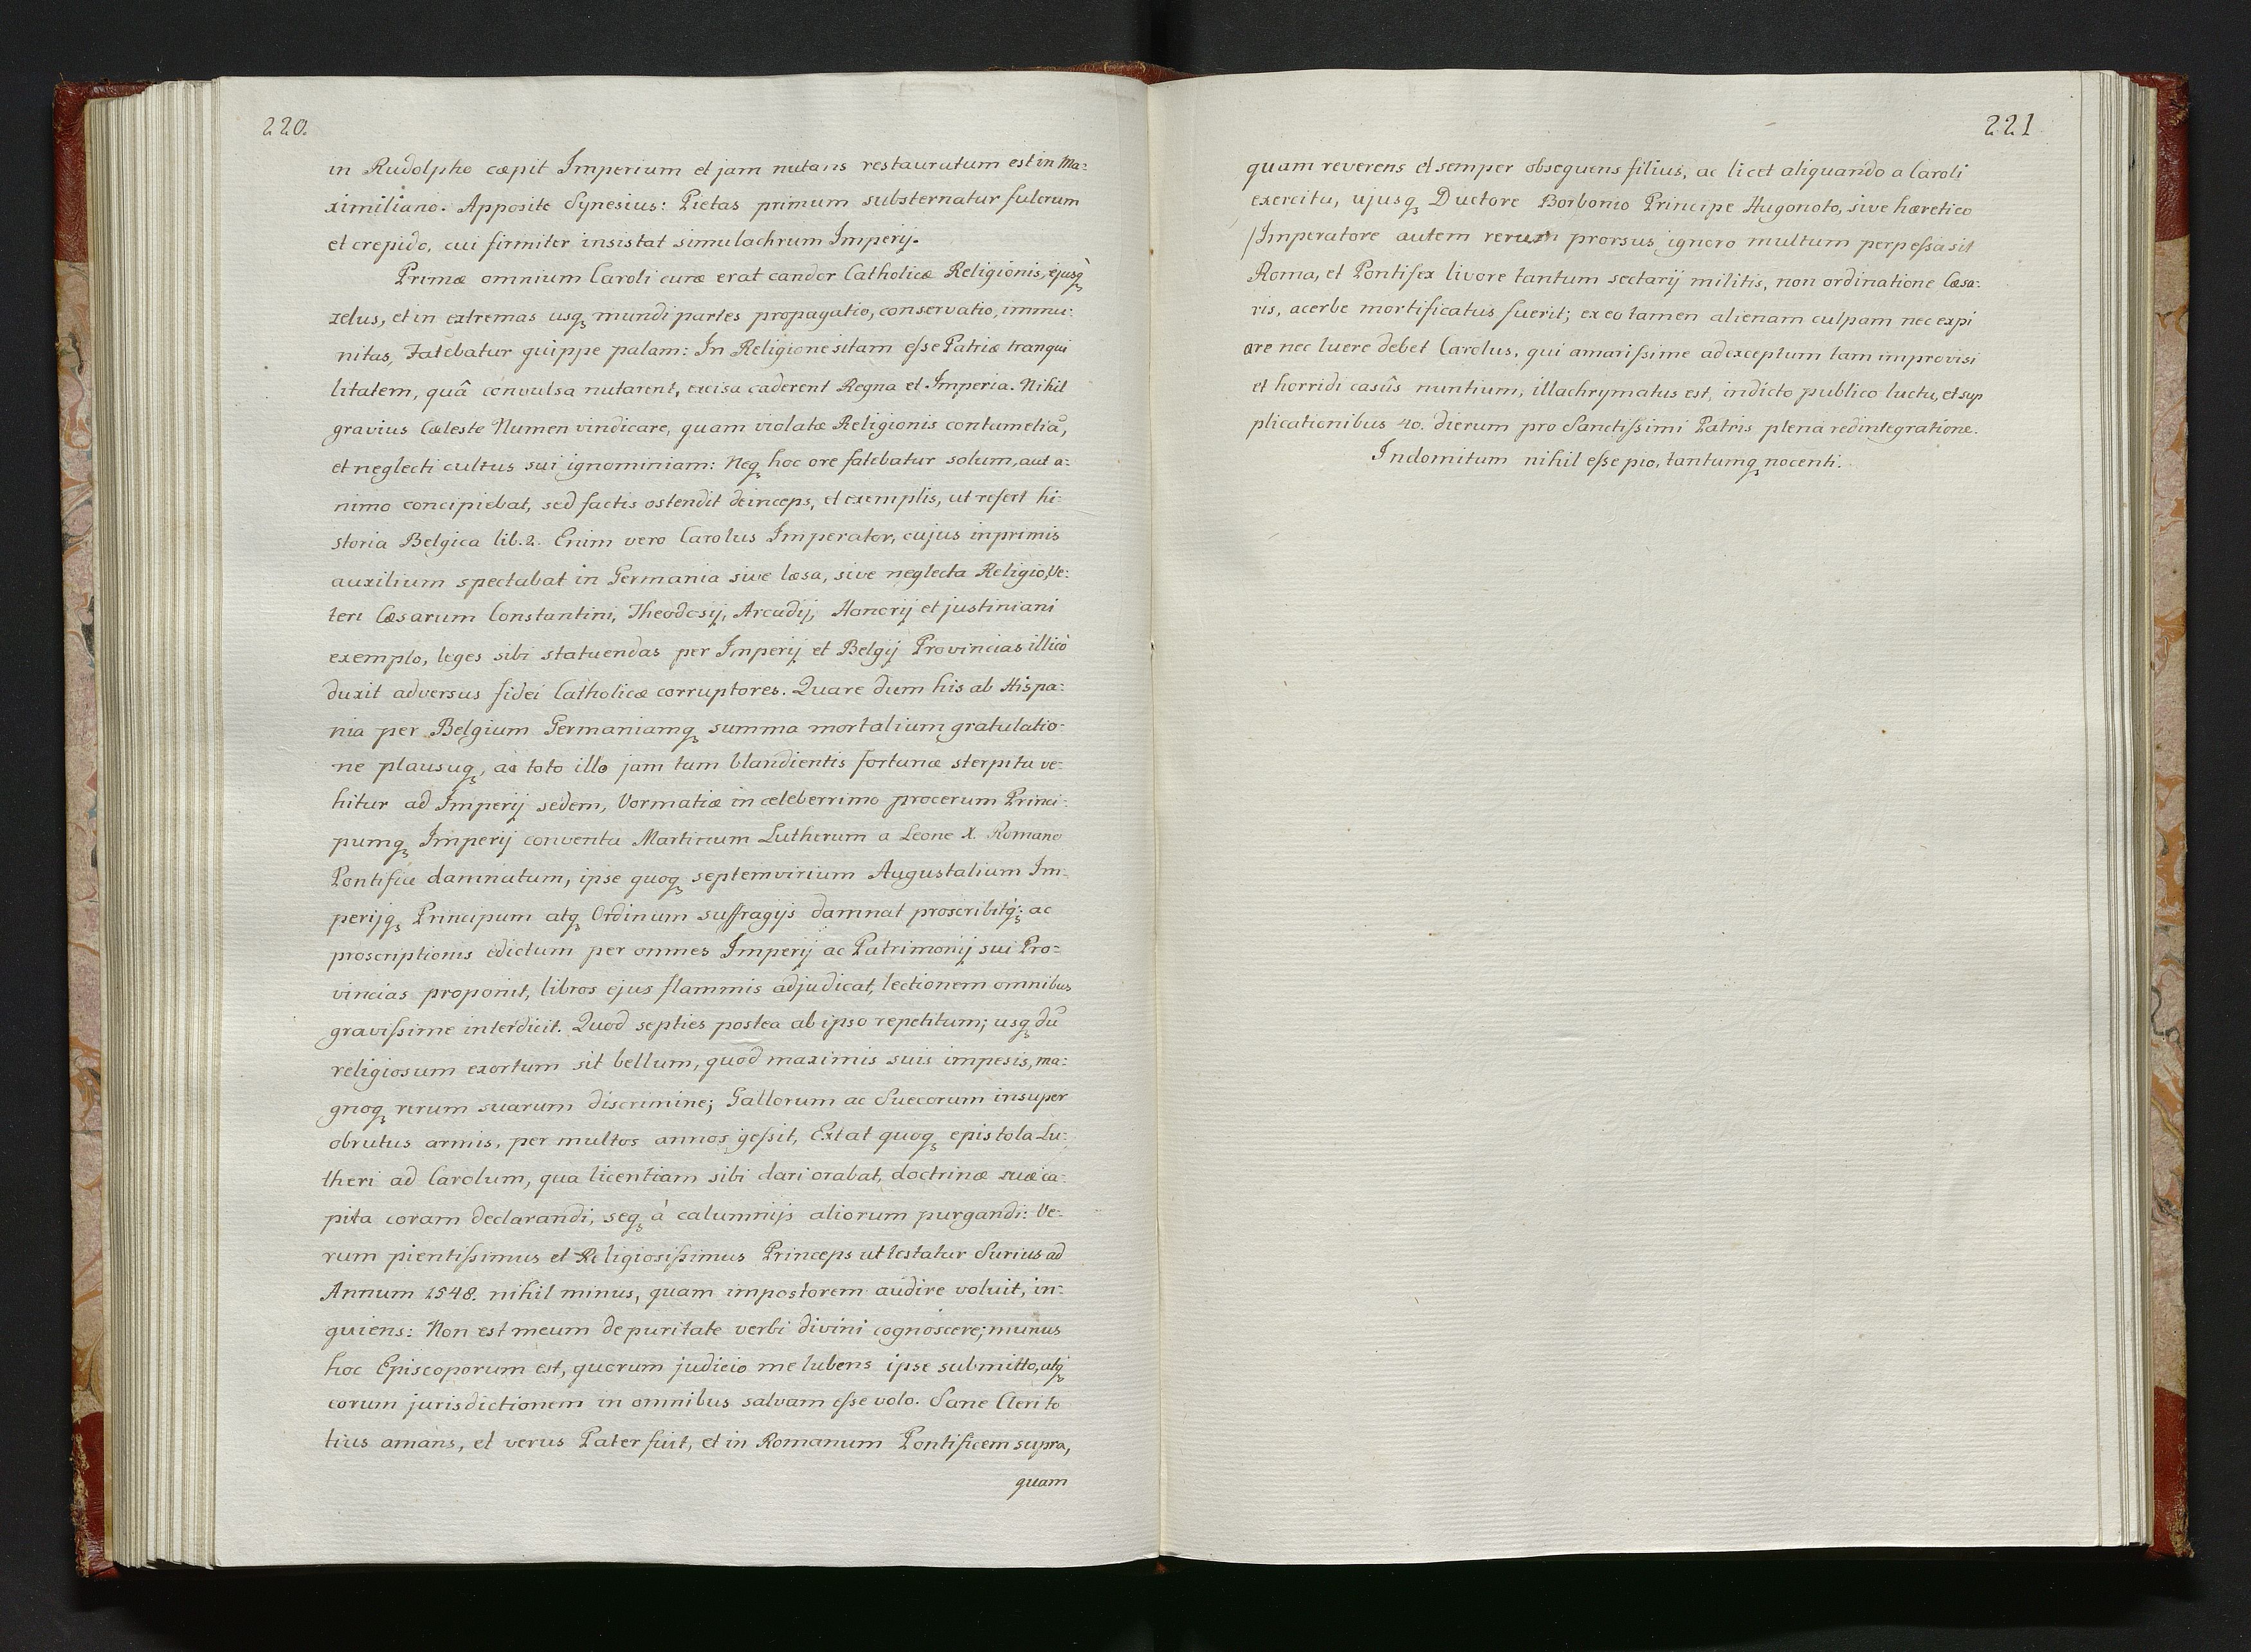 220.
in Rudolpho cæpit Imperium et jam nutans restauratum est in Ma:
ximiliano. Apposite Synesius: Pietas primum substernatur fulcrum
et crepido, cui firmiter insistat simulachrum Imperij.
Primæ omnium Caroli curæ erat candor Catholicæ Religionis, ejusq̢
zelus, et in extremas usq̢ mundi partes propagatio, conservatio, immu:
nitas, Fatebatur quippe palam: In Religione sitam eſse Patriæ tranqui
litatem, quâ convulsa nutarent, excisa caderent Regna et Imperia. Nihil
gravius Cæleste Numen vindicare, quam violatæ Religionis contumeliā,
et neglecti cultus sui ignominiam: Neq̢ hoc ore fatebatur solum, aut a:
nimo concipiebat, sed factis ostendit deinceps, et exemplis, ut refert hi:
storia Belgica lib. 2. Enim vero Carolus Imperator, cujus inprimis
auxilium spectabat in Germania sive læsa, sive neglecta Religio, Ve:
teri Cæsarum Constantini, Theodosij, Arcadij, Honorij et justiniani
exemplo, leges sibi statuendas per Imperij et Belgij Provincias illicò
duxit adversus fidei Catholicæ corruptores. Quare dum his ab Hispa:
nia per Belgium Germaniamq̢ summa mortalium gratulatio-
ne plausuq̢, ac toto illo jam tum blandientis fortunæ sterpitu ve:
hitur ad Imperij sedem, Vormatiæ in celeberrimo procerum Princi:
pumq̢ Imperij conventu Martinum Lutherum a Leone X. Romano
Pontifice damnatum, ipse quoq̢ septemvirium Augustalium Im-
perijq̢ Principum atq̢ Ordinum suffragijs damnat proscribitq̢; ac
proscriptionis edictum per omnes Imperij ac Patrimonij sui Pro-
vincias proponit, libros ejus flammis adjudicat, lectionem omnibus
graviſsime interdicit. Quod septies postea ab ipso repetitum; usq̢ dū
religiosum exortum sit bellum, quod maximis suis impesis, ma:
gnoq̢ rerum suarum discrimine; Gallorum ac Suecorum insuper
obrutus armis, per multos annos geſsit, Extat quoq̢ epistola Lu:
theri ad Carolum, qua licentiam sibi dari orabat, doctrinæ suæ ca:
pita coram declarandi, seq̢ à calumnijs aliorum purgandi: Ve:
rum pientiſsimus et Religiosiſsimus Princeps ut testatur Surius ad
Annum 1548. nihil minus, quam impostorem audire voluit, in-
quiens: Non est meum de puritate verbi divini cognoscere; munus
hoc Episcoporum est, quorum judicio me lubens ipse submitto, atq̢
eorum jurisdictionem in omnibus salvam eſse volo. Sane Cleri to
tius amans, et verus Pater fuit, et in Romanum Pontificem supra,
quam
221
quam reverens et semper obsequens filius, ac licet aliquando a Caroli
exercitu, ujusq̢ Ductore Borbonio Principe Hugonoto, sive hæretico
/Imperatore autem rerum prorsus ignoro multum perpeſsa sit
Roma, et Pontifex livore tantum sectarij militis, non ordinatione Cæsa:
ris, acerbe mortificatus fuerit; ex eo tamen alienam culpam nec expi
are nec luere debet Carolus, qui amariſsime ad exceptum tam improvisi
et horridi casûs nuntium, illachrymatus est, indicto publico luctu, et sup
plicationibus 40. dierum pro Sanctiſsimi Patris plenâ redintegratione.
Indomitum nihil eſse pio, tantumq̢ nocenti.